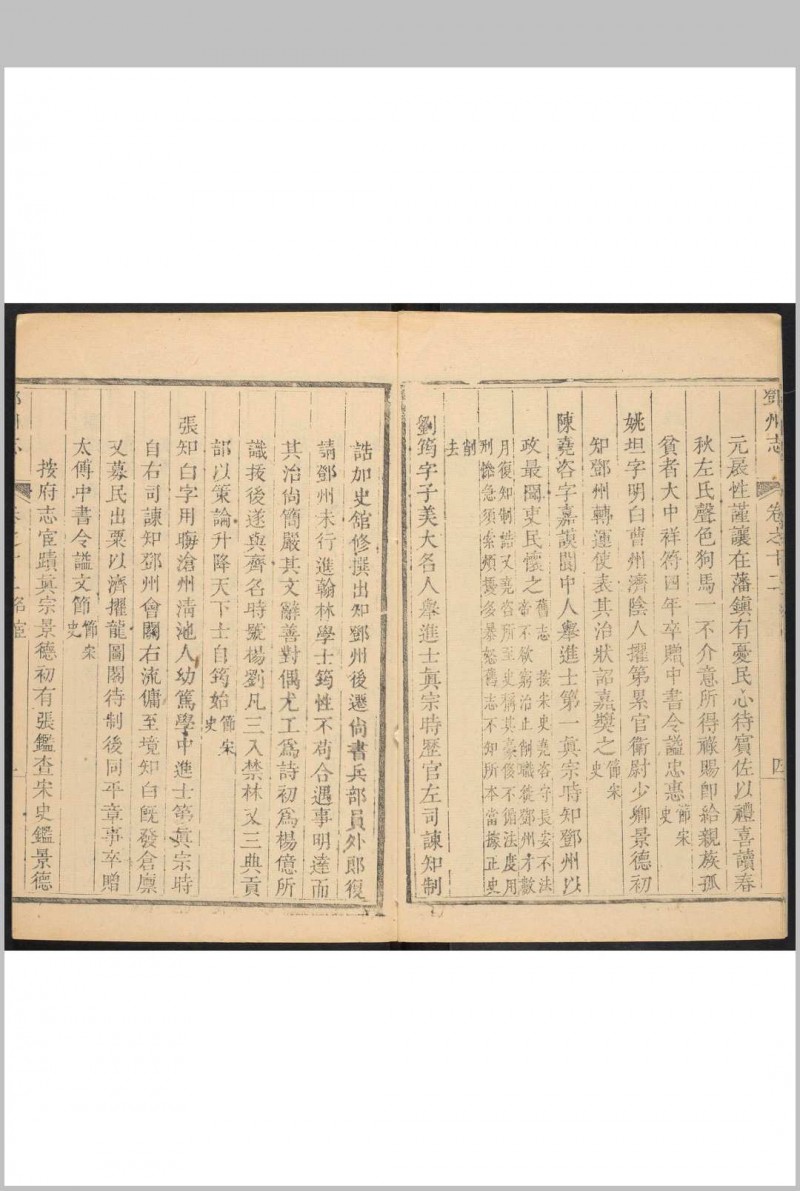 鄧州志
卷之十二
四
元扆性謹讓在藩鎮有憂民心待賓佐以禮喜讀春
秋左氏聲色狗馬一不介意所得祿賜即給親族孤
貧者大中祥符四年卒贈中書令謚忠惠節宋
史
姚坦字明白曹州濟陰人擢第累官衛尉少卿景德初
知鄧州轉運使表其治狀詔嘉獎之節宋
史
陳堯咨字嘉謨閬中人舉進士第一眞宗時知鄧州以
政最聞吏民懷之舊志 按宋史堯咨守長安不法
帝不欲窮治止削職徙鄧州才數
月復知制誥又堯咨所至史稱其豪侈不循法度用
刑慘急須索煩擾多暴怒舊志不知所本當據正史
削
去
劉筠字子美大名人舉進士眞宗時歷官左司諫知制
誥加史舘修撰出知鄧州後遷尙書兵部員外郎復
請鄧州未行進翰林學士筠性不苟合遇事明達而
其治尙簡嚴其文辭善對偶尤工爲詩初爲楊億所
識拔後遂與齊名時號楊劉凡三入禁林又三典貢
部以策論升降天下士自筠始節宋
史
張知白字用晦滄州淸池人幼篤學中進士第眞宗時
自右司諫知鄧州會關右流傭至境知白旣發倉廪
又募民出粟以濟擢龍圖閣待制後同平章事卒贈
太傅中書令謚文節節宋
史
按府志宦蹟眞宗景德初有張鑑查宋史鑑景德